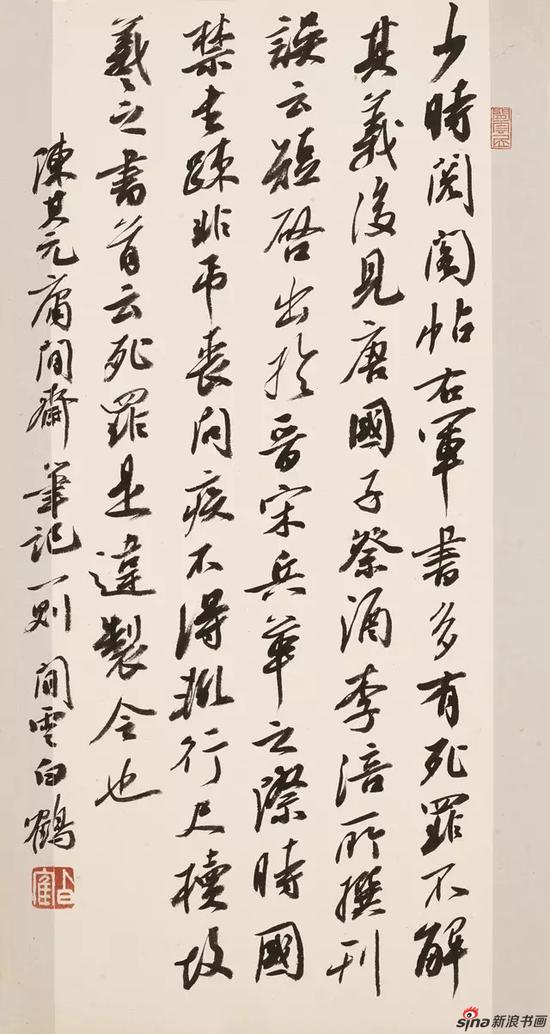 少時閱閣帖右軍書多有死罪不解
其義後見唐國子祭酒李涪所撰刊
誤云短啓出於晉宋兵革之際時國
禁書疏非弔喪問疾不得輒行尺牘故
羲之書首云死罪是違製令也
陳其元庸閒齋筆記一則 閒雲白鶴
sina 新浪书画